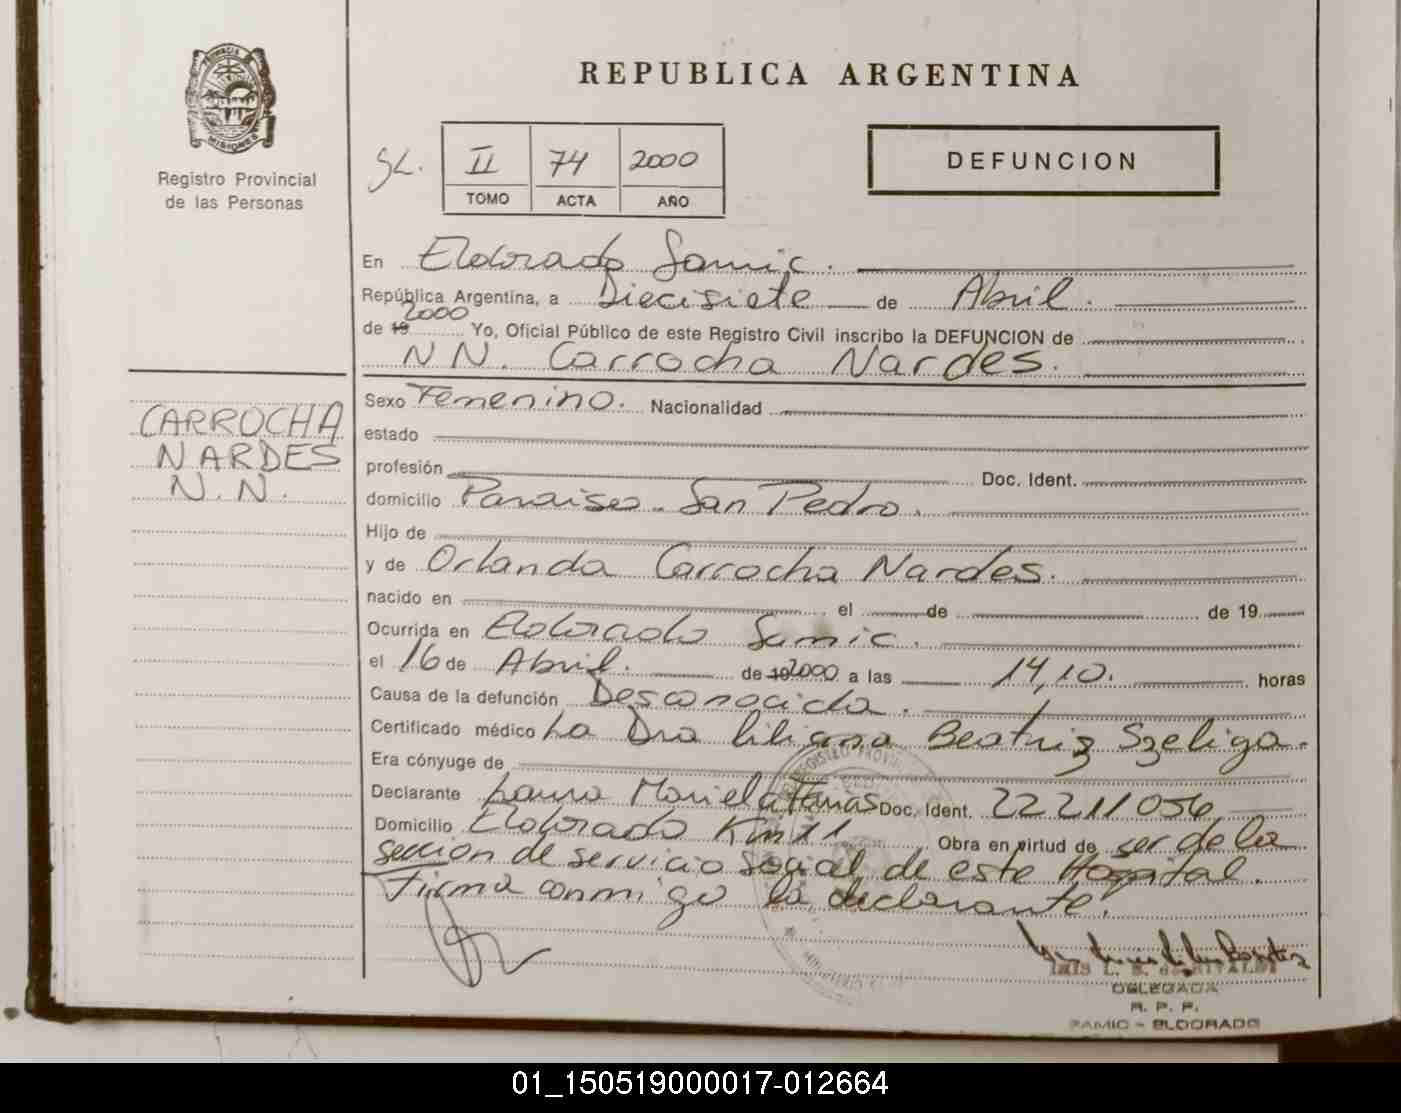 REPUBLICA ARGENTINA
PROVINCIA DE MISIONES
Registro Provincial
de las Personas
SL. II 74 2000
TOMO ACTA AÑO
DEFUNCION
En Eldorado Samic.
República Argentina, a Diecisiete de Abril.
de 19 2000 Yo, Oficial Público de este Registro Civil inscribo la DEFUNCION de
NN. Carrocha Nardes.
CARROCHA
NARDES
N.N.
Sexo Femenino. Nacionalidad
estado
profesión Doc. Ident.
domicilio Paraiso - San Pedro.
Hijo de
y de Orlanda Carrocha Nardes.
nacido en el de de 19
Ocurrida en Eldorado Samic.
el 16 de Abril. de 19 2000 a las 14,10. horas
Causa de la defunción Desconocida.
Certificado médico La Dra Liliana Beatriz Szeliga.
Era cónyuge de
Declarante Laura Mariela Farias Doc. Ident. 22211056
Domicilio Eldorado Km11 Obra en virtud de ser de la
sección de servicio social de este Hospital.
Firma conmigo la declarante.
DELEGADA
R. P. P.
SAMIC - ELDORADO
01_150519000017-012664